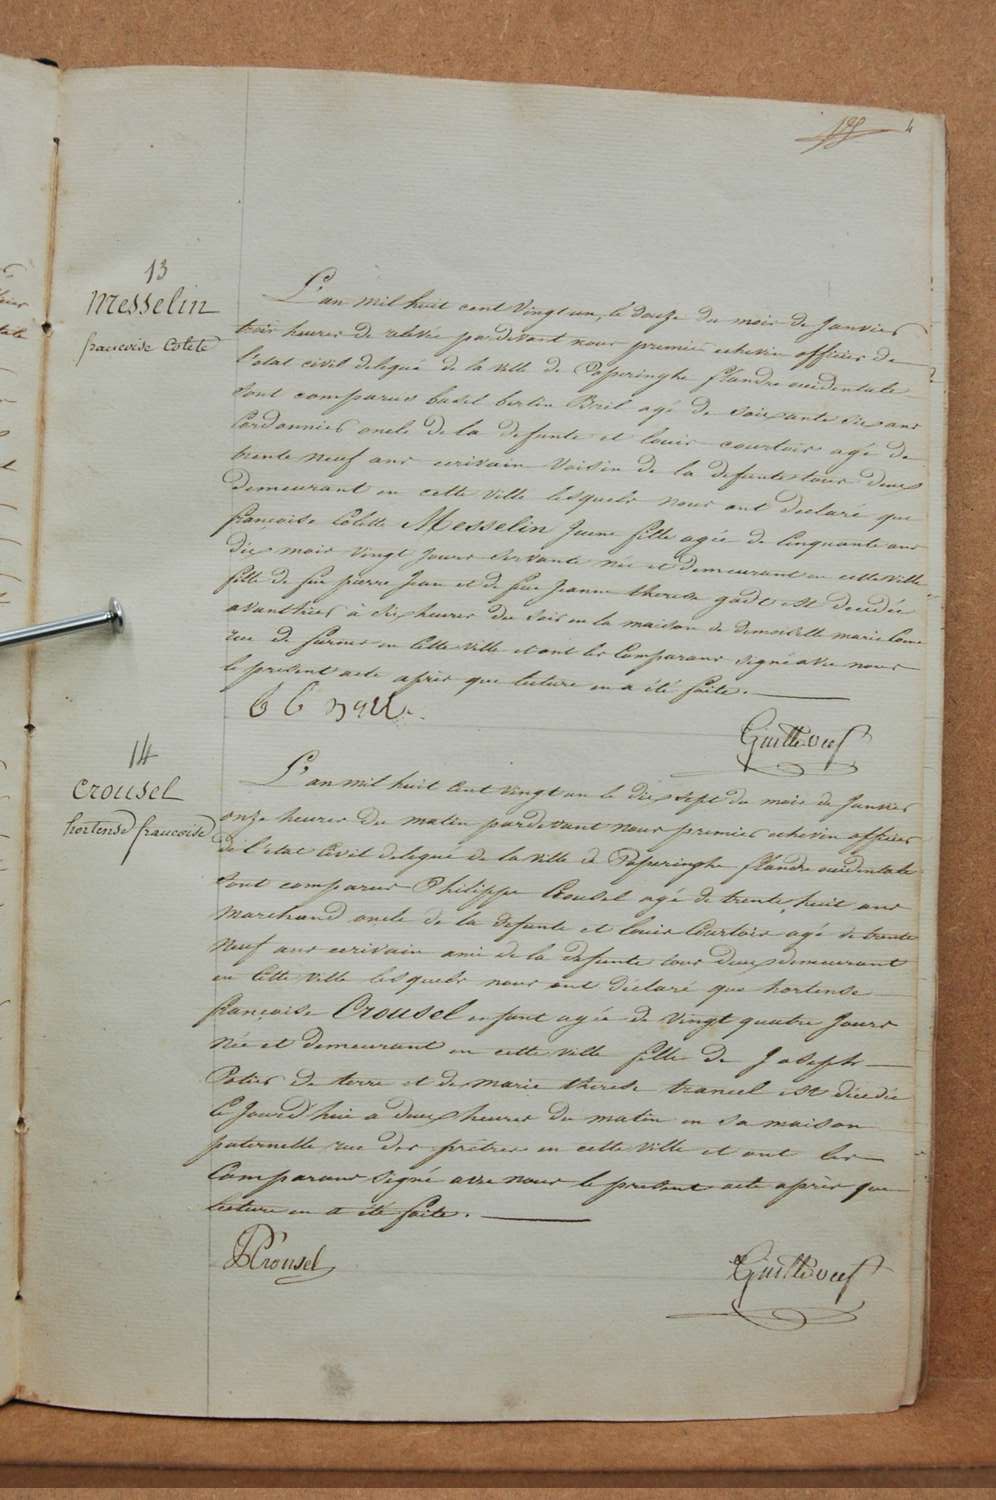 4
13
Messelin
francoise Colete
L'an mil huit cent vingt un, le douze du mois de Janvier
trois heures de relevée pardevant nous premier echevin officier de
l'etat civil delegué de la ville de Poperinghe flandre occidentale
sont comparus basel bertin Bril agé de soixante six ans
Cordonnier oncle de la defunte et louis courtois agé de
trente neuf ans ecrivain Voisin de la defunte tous deux
demeurant en cette ville lesquels nous ont declaré que
francoise Colette Messelin Jeune fille agée de Cinquante ans
dix mois vingt Jours servante née et demeurant en cette ville
fille de feu pierre Jean et de feue Jeanne therese est decedée
avanthier à six heures du soir en la maison de Demoiselle marie
rue de furnes en Cette ville et ont les Comparans signé avec nous
le present acte après que lecture en a été faite.
14
Crousel
hortense francoise
L'an mil huit Cent vingt un le dix sept du mois de Janvier
onze heures du matin pardevant nous premier echevin officier
de l'etat Civil delegué de la ville de Poperinghe flandre occidentale
sont comparus Philippe Crousel agé de trente huit ans
Marchand oncle de la defunte et louis Courtois agé de trente
Neuf ans ecrivain ami de la defunte tous deux demeurant
en Cette ville lesquels nous ont declaré que hortense
françoise Crousel enfant agée de vingt quatre Jours
Née et demeurant en cette ville fille de Joseph
Potier de terre et de marie therese trancel est décedée
Ce Jourd'hui a deux heures du matin en sa maison
paternelle rue des prêtres en cette ville et ont les
Comparans signé avec nous le present acte après que
lecture en a été faite.
PCrousel